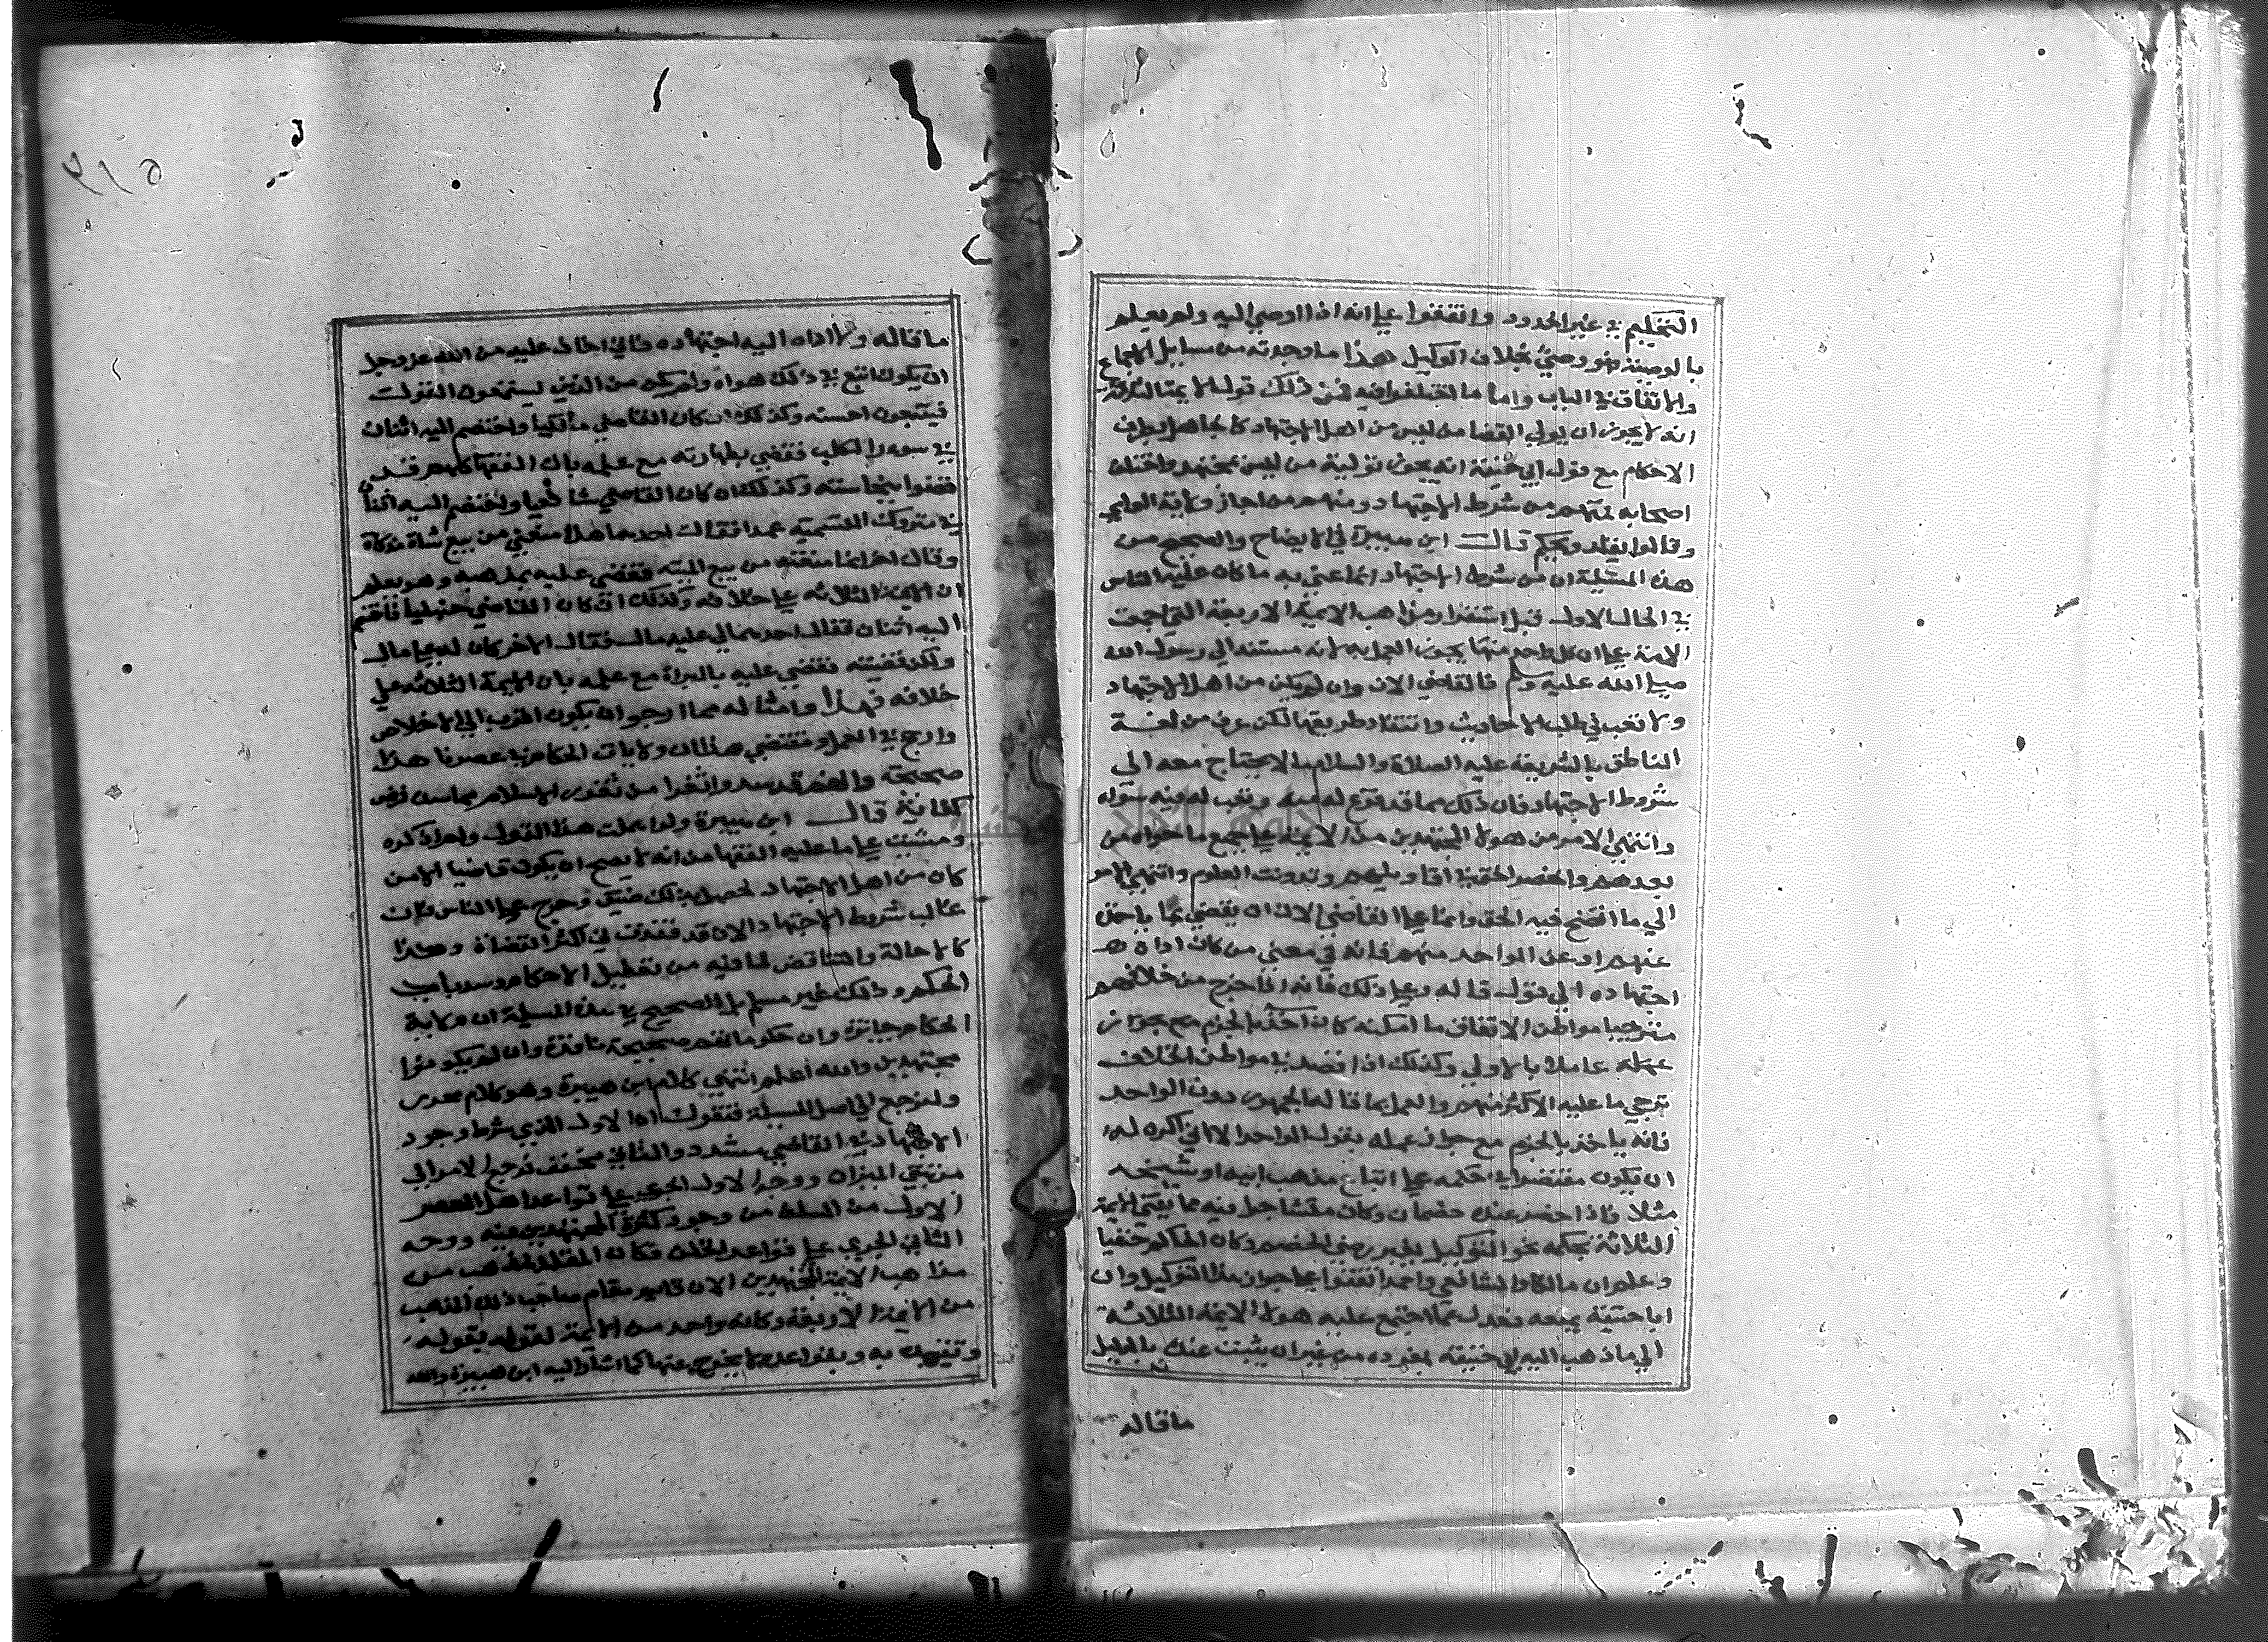 التحكيم في غير الحدود واتفقوا على انه اذا اوصي اليه ولم يعلم
بالوصية فهو وصي بخلاف الوكيل هذا ما وجدته من مسايل الاجماع
والاتفاق في الباب واما ما اختلفوا فيه فمن ذلك قول الايمة الثلاثة
انه لا يجوز ان يولي القضا من ليس من اهل الاجتهاد كالجاهل بطرف
الاحكام مع قول ابي حنيفة انه يجوز تولية من ليس بمجتهد واختلف
اصحابه فمنهم من شرط الاجتهاد ومنهم من اجاز ولاية العامي
وقالوا يقلد ويحكم قال ابن هبيرة في الايضاح والصحيح من
هذه المسئلة ان من شرط الاجتهاد انما عني به ما كان عليه الناس
في الحال الاول قبل استقرار مذاهب الايمة الاربعة التي اجمعت
الامة على ان كل واحد منها يجوز العمل به لانه مستند الى رسول الله
صلى الله عليه وسلم فالقاضي الان وان لم يكن من اهل الاجتهاد
ولا تعب في طلب الاحاديث وانتقاد طريقها لكن عرف من لغة
الناطق بالشريعة عليه الصلاة والسلام ما لا يحتاج معه الي
شروط الاجتهاد فان ذلك مما قد فرغ له منه وتعب له فيه سواه
وانتهى الامر من هولا المجتهدين من الايمة على جميع ما حواه من
بعدهم وانحصر الحق في اقاويلهم وتدونت العلوم وانتهى الامر
الي ما اتضح فيه الحق وانما على القاضي الان ان يقضي بما ياخذه
عنهم او عن الواحد منهم فانه في معني من كان اداه
اجتهاده الي قول قاله وعلى ذلك فانه اذا خرج من خلافهم
متوخيا مواطن الاتفاق ما امكنه كان اخذا بالحزم مع جواز
عمله عاملا بالاولي وكذلك اذا قصد في مواطن الخلاف
توخي ما عليه الاكثر منهم والعمل بما قاله الجمهور دون الواحد
فانه ياخذ بالحزم مع جواز عمله بقول الواحد الا اني اكره له
ان يكون مقتصرا في حكمه على اتباع مذهب ابيه او شيخه
مثلا فاذا حضر عنده خصمان وكان ما تشاجرا فيه مما يفتي الايمة
الثلاثة بحكمه نحو التوكيل بغير رضي الخصم وكان الحاكم حنفيا
وعلم ان مالكا والشافعي واحمد اتفقوا على جواز هذا التوكيل وان
ابا حنيفة يمنعه فعدل عما اجتمع عليه هولا الايمة الثلاثة
الي ما ذهب اليه ابي حنيفة بمفرده من غير ان يثبت عنده بالدليل
ما قاله
ما قاله ولا اداه اليه اجتهاده فاني اخاف عليه من الله عز وجل
ان يكون اتبع في ذلك هواه ولم يكن من الذين يستمعون القول
فيتبعون احسنه وكذلك ان كان القاضي مالكيا واختصم اليه اثنان
في سور الكلب فقضي بطهارته مع علمه بان الفقها كلهم قد
قضوا بنجاسته وكذلك ان كان القاضي شافعيا واختصم اليه اثنان
في متروك التسمية عمدا فقال احدهما هذا منعني من بيع شاة مذكاة
وقال اخر انما منعته من بيع الميتة فقضي عليه بمذهبه وهو يعلم
ان الايمة الثلاثة على خلافه وكذلك ان كان القاضي حنبليا فاختصم
اليه اثنان فقال احدهما لي عليه مال فقال الاخر كان له علي مال
ولكن قضيته فقضي عليه بالبراة مع علمه بان الايمة الثلاثة على
خلافه فهذا وامثاله مما ارجو ان يكون اقرب الى الاخلاص
وارجح في العمل ومقتضي هذا ان ولايات الحكام في عصرنا هذا
صحيحة وانهم قد سدوا ثغرا من ثغور الاسلام مما سده فرض
كفاية قال ابن هبيرة ولو اهملت هذا القول ولم اذكره
ومشيت على ما عليه الفقها من انه لا يصح ان يكون قاضيا الا من
كان من اهل الاجتهاد لحصل بذلك ضيق وحرج على الناس فان
غالب شروط الاجتهاد الان قد فقدت في اكثر القضاة وهذا
كالاحالة والتناقض لما فيه من تعطيل الاحكام وسد باب
الحكم وذلك غير مسلم بل الصحيح في هذه المسيلة ان ولاية
الحكام جايزة وان حكوماتهم صحيحة نافذة وان لم يكونوا
مجتهدين والله اعلم انتهي كلام ابن هبيرة وهو كلام محرر
ولنرجع الى اصل المسيلة فنقول ان الاول الذي شرط وجود
الاجتهاد في القاضي مشدد والثاني مخفف فرجع الامر الى
مرتبتي الميزان ووجه الاول الجري على قواعد اهل العصر
الاول من السلف من وجود كثرة المجتهدين فيه ووجه
الثاني الجري على قواعد الخلف فكان المقلد لمذهب من
مذاهب الايمة المجتهدين الان قايم مقام صاحب ذلك المذهب
من الايمة الاربعة وكانه واحد من الايمة لقوله بقوله
وتقيده به وبقواعده لا يخرج عنها كما اشار اليه ابن هبيرة والله